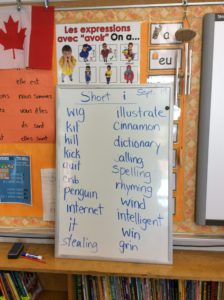 Les expressions
avec "avoir" On a...
elle est
nous sommes
vous êtes
ils sont
au
eu
Short i
Sept.
wig
kit
hill
kick
quit
crib
penguin
internet
it
stealing
illustrate
cinnamon
dictionary
calling
spelling
rhyming
wind
intelligent
win
grin